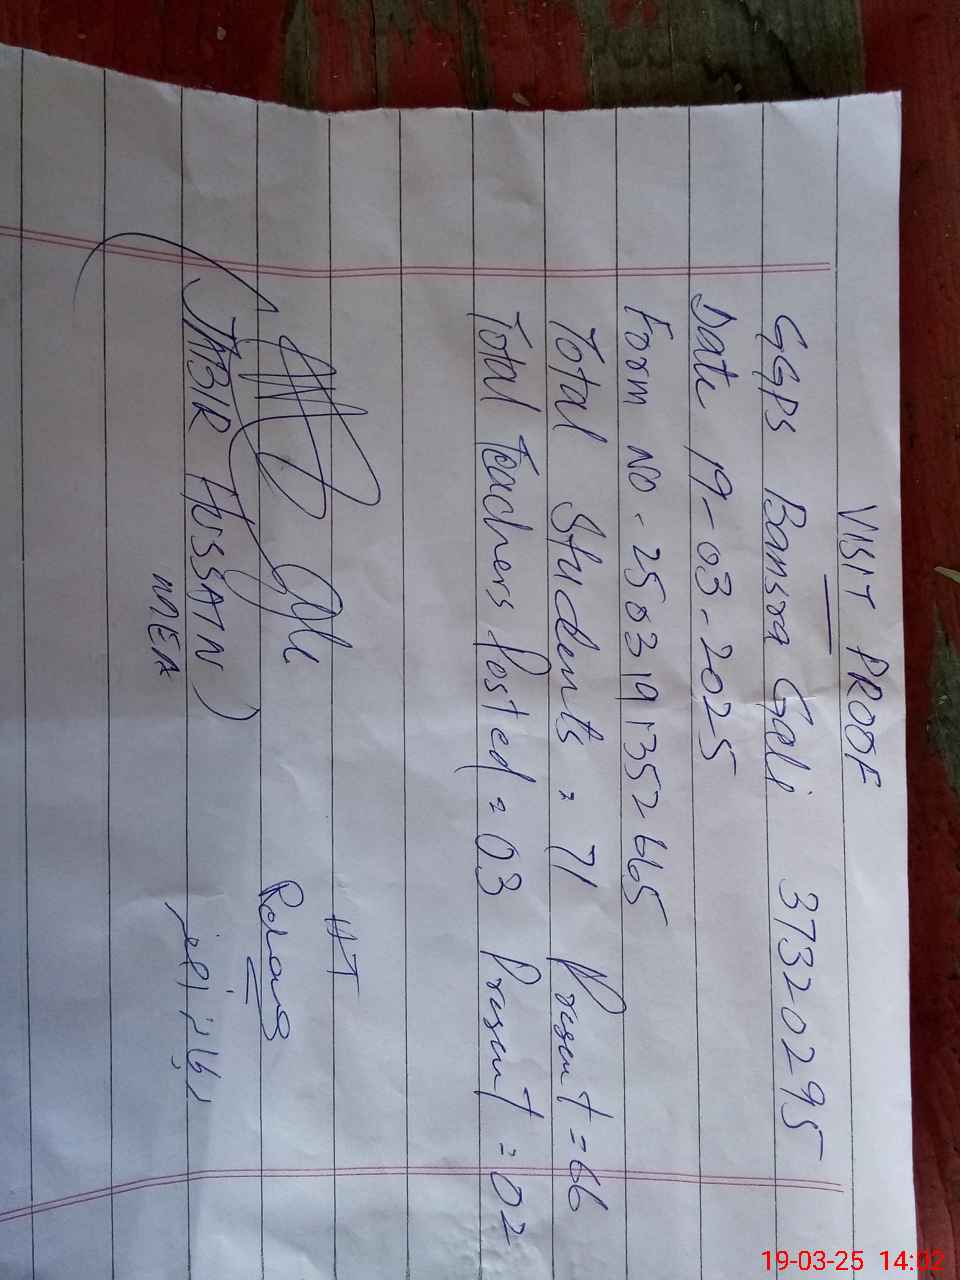 VISIT PROOF
GGPS Bansra Gali 37320295
Date 19-03-2025
Form NO. 250319135246 5
Total Students = 71 Present = 66
Total Teachers Posted = 03 Present = 02
HT
(JABIR HUSSAIN)
MEA
19-03-25 14:02